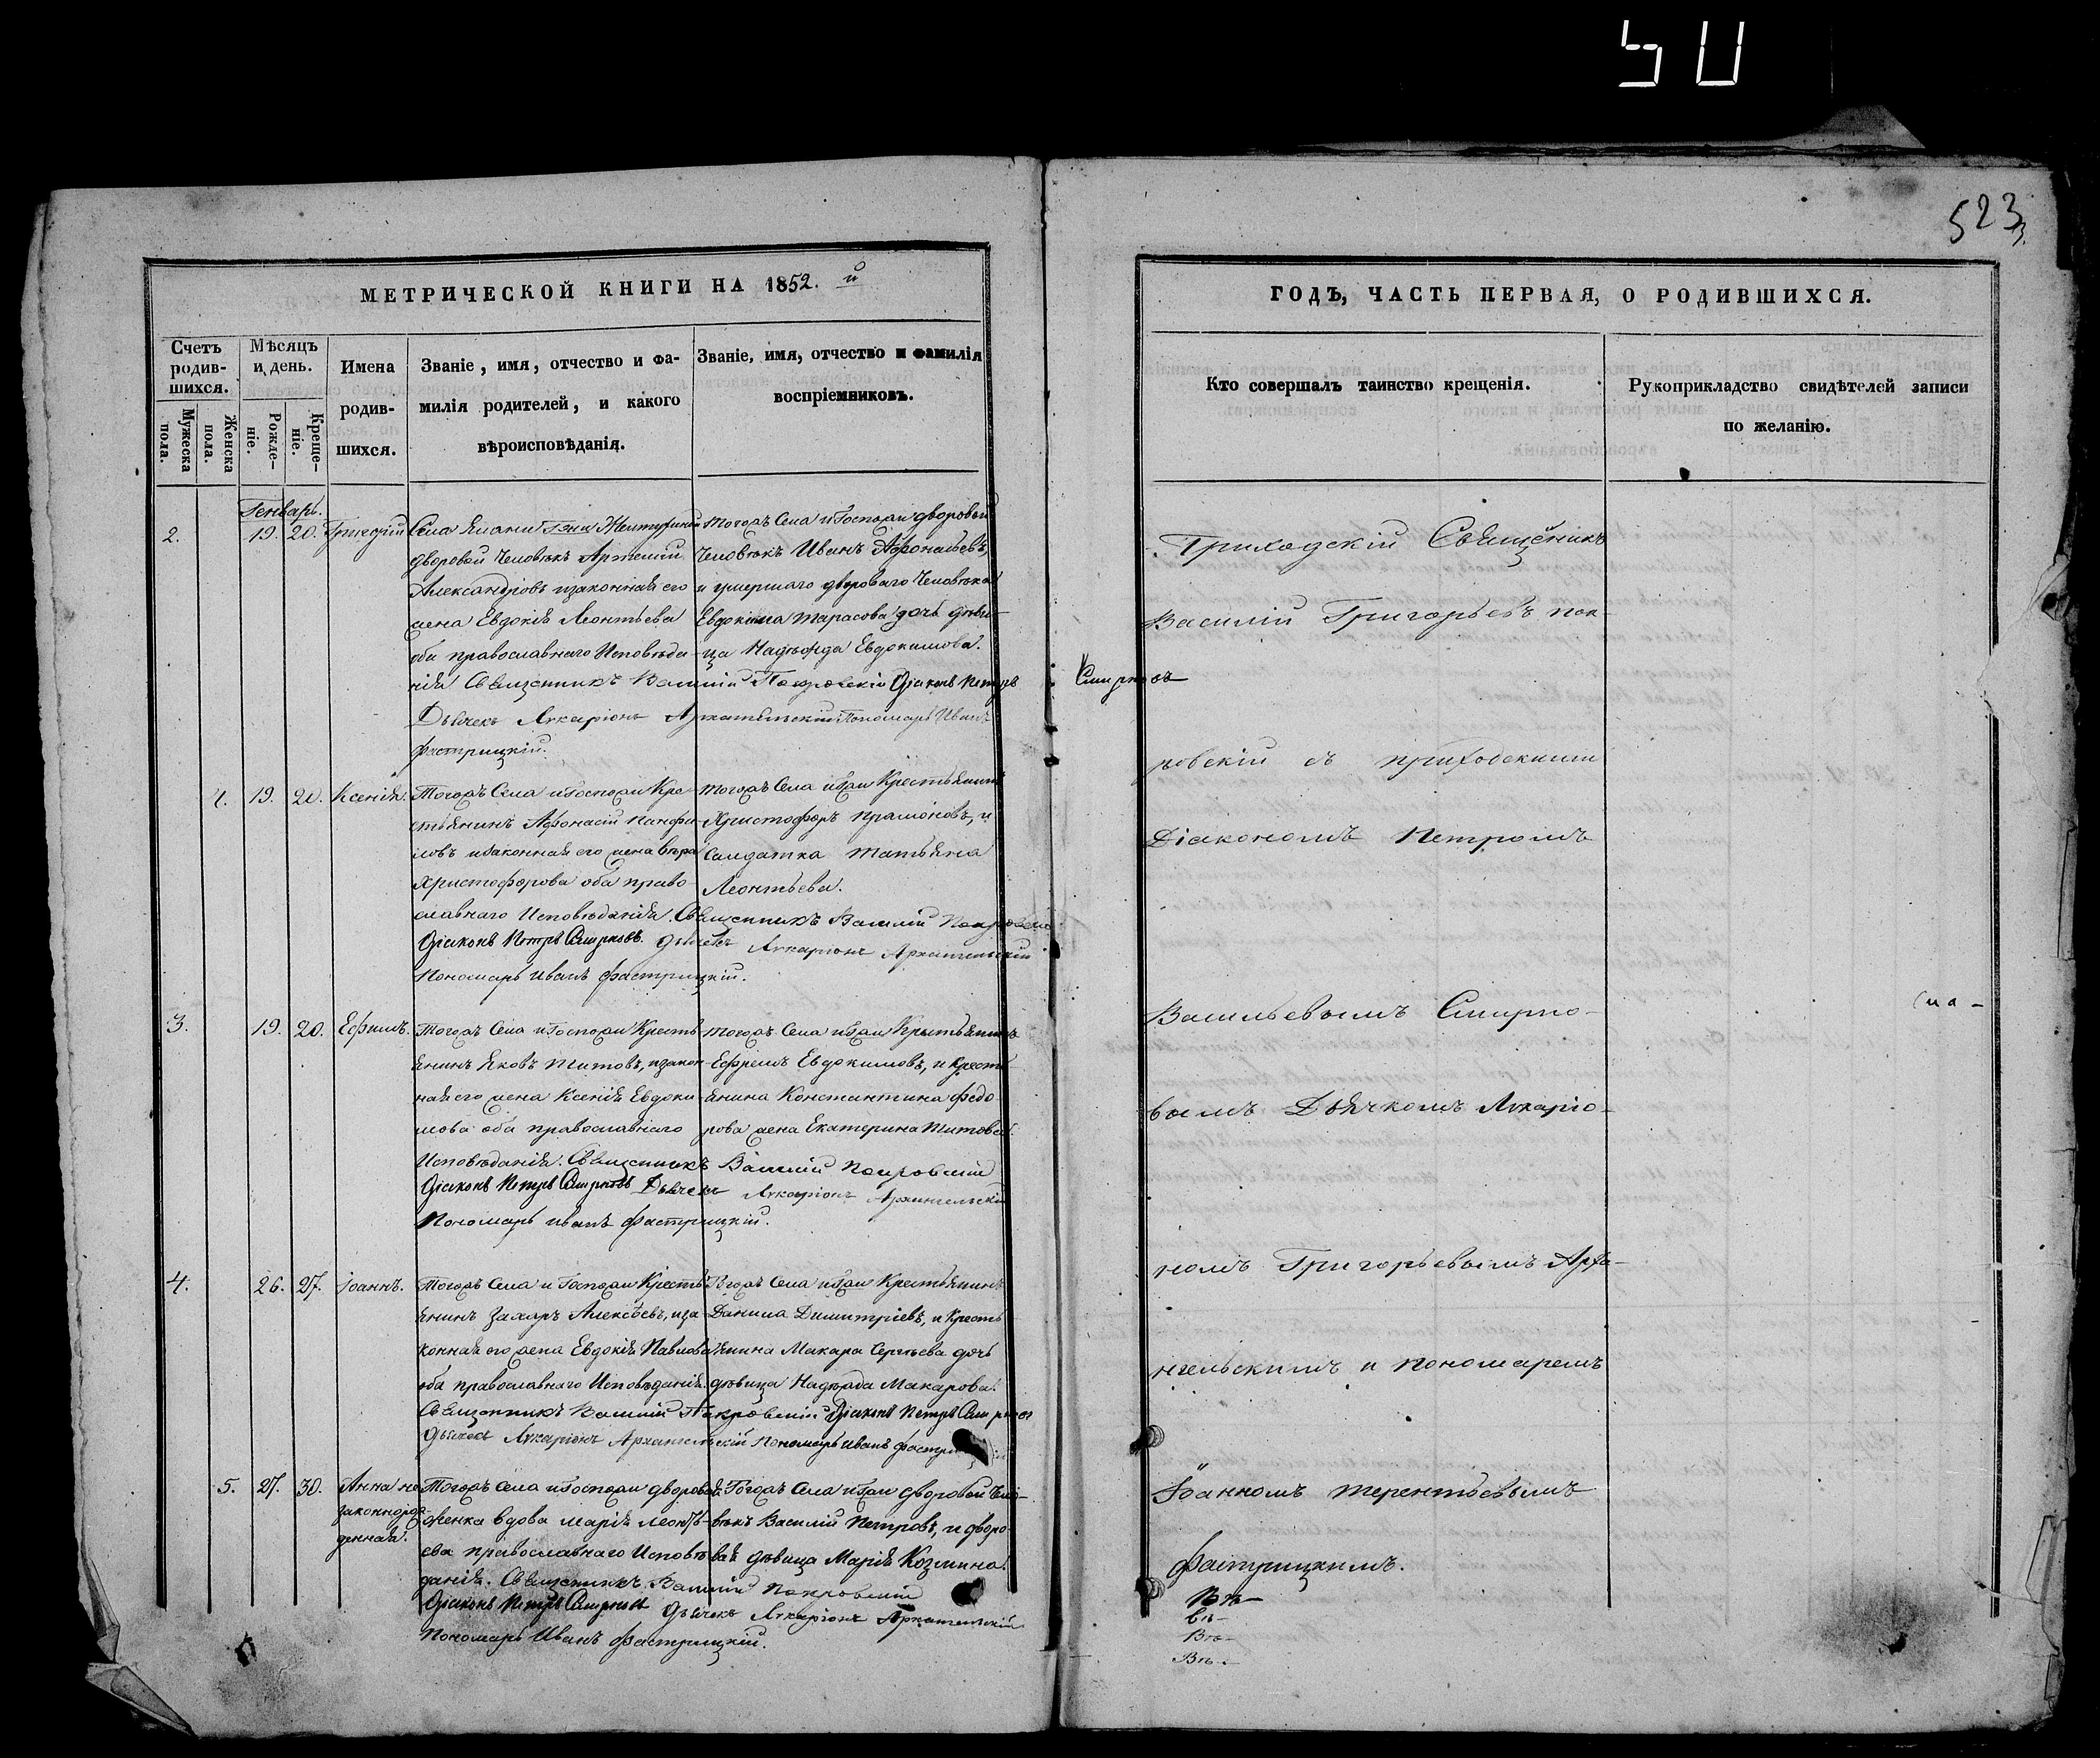 50
523
МЕТРИЧЕСКОЙ КНИГИ НА 1852. й
Счетъ родив-шихся.
Мужеска пола.
Женска пола.
Мѣсяцъ и день.
Рожде-ніе.
Креще-ніе.
Имена родив-шихся.
Званіе, имя, отчество и фа-
милія родителей, и какого
вѣроисповѣданія.
Званіе, имя, отчество и фамилія
воспріемниковъ.
Генварь.
2. 19. 20. Григорій
Села
дворовой Человѣкъ Артемій
Александровъ изаконная его
жена Евдокія Леонтьева
оба православнаго Исповѣда-
нія Священникъ Василій Покровскій Діаконъ Петръ Смирновъ
Дьячекъ Илларіонъ Архангельскій Пономарь Иванъ
Фастрицкій.
Тогожъ Села и Господи дворовый
Человѣкъ Иванъ Афонасьевъ,
и умершаго двороваго Человѣка
Евдокима Тарасова дочь дѣви-
ца Надѣжда Евдокимова.
4. 19. 20. Ксенія.
Тогожъ Села и Господи Кре-
стьянинъ Афонасій Панфи-
ловъ изаконная его жена Вѣра
Христофорова оба право-
славнаго Исповѣданія. Священникъ Василій Покровскій
Діаконъ Петръ Смирновъ. Дьячекъ Илларіонъ Архангельскій
Пономарь Иванъ Фастрицкій.
Тогожъ Села и Крестьянинъ
Христофоръ и
Салдатка Татьяна
Леонтьева.
3. 19. 20. Ефимъ.
Тогожъ Села и Господи Кресть-
янинъ Яковъ Титовъ, изакон-
ная его жена Ксенія Евдоки-
мова оба православнаго
Исповѣданія. Священникъ Василій Покровскій
Діаконъ Петръ Смирновъ Дьячекъ Илларіонъ Архангельскій
Пономарь Иванъ Фастрицкій.
Тогожъ Села и Крестьянинъ
Ефремъ Евдокимовъ, и Кресть-
янина Константина Федо-
рова жена Екатерина Титова.
4. 26. 27. Іоаннъ.
Тогожъ Села и Господи Кресть-
янинъ Захаръ Алексѣевъ, иза-
конная его жена Евдокія Павлова
оба православнаго Исповѣданія.
Священникъ Василій Покровскій Діаконъ Петръ Смирновъ
Дьячекъ Илларіонъ Архангельскій Пономарь Иванъ
Тогожъ Села и Крестьянинъ
Данила Димитріевъ, и Кресть-
янина Макара Сергѣева дочь
дѣвица Надѣжда Макарова.
5. 27. 30. Анна не-
законнорож-
денная.
Тогожъ Села и Господи дворовая
Женка вдова Марія Леонть-
ева православнаго Исповѣ-
данія. Священникъ Василій Покровскій
Діаконъ Петръ Смирновъ Дьячекъ Илларіонъ Архангельскій
Пономарь Иванъ Фастрицкій.
Тогожъ Села и дворовой Чело-
вѣкъ Василій Петровъ, и дворо-
вая дѣвица Марія Козмина.
ГОДЪ, ЧАСТЬ ПЕРВАЯ, О РОДИВШИХСЯ.
Кто совершалъ таинство крещенія.
Рукоприкладство свидѣтелей записи
по желанію.
Приходскій Священникъ
Василій Григорьевъ Пок-
ровскій съ приходскими
Діакономъ Петромъ
Васильевымъ Смирно-
вымъ Дьячкомъ Илларіо-
номъ Григорьевымъ Арха-
нгельскимъ и Пономаремъ
Іоанномъ Терентьевымъ
Фастрицкимъ.